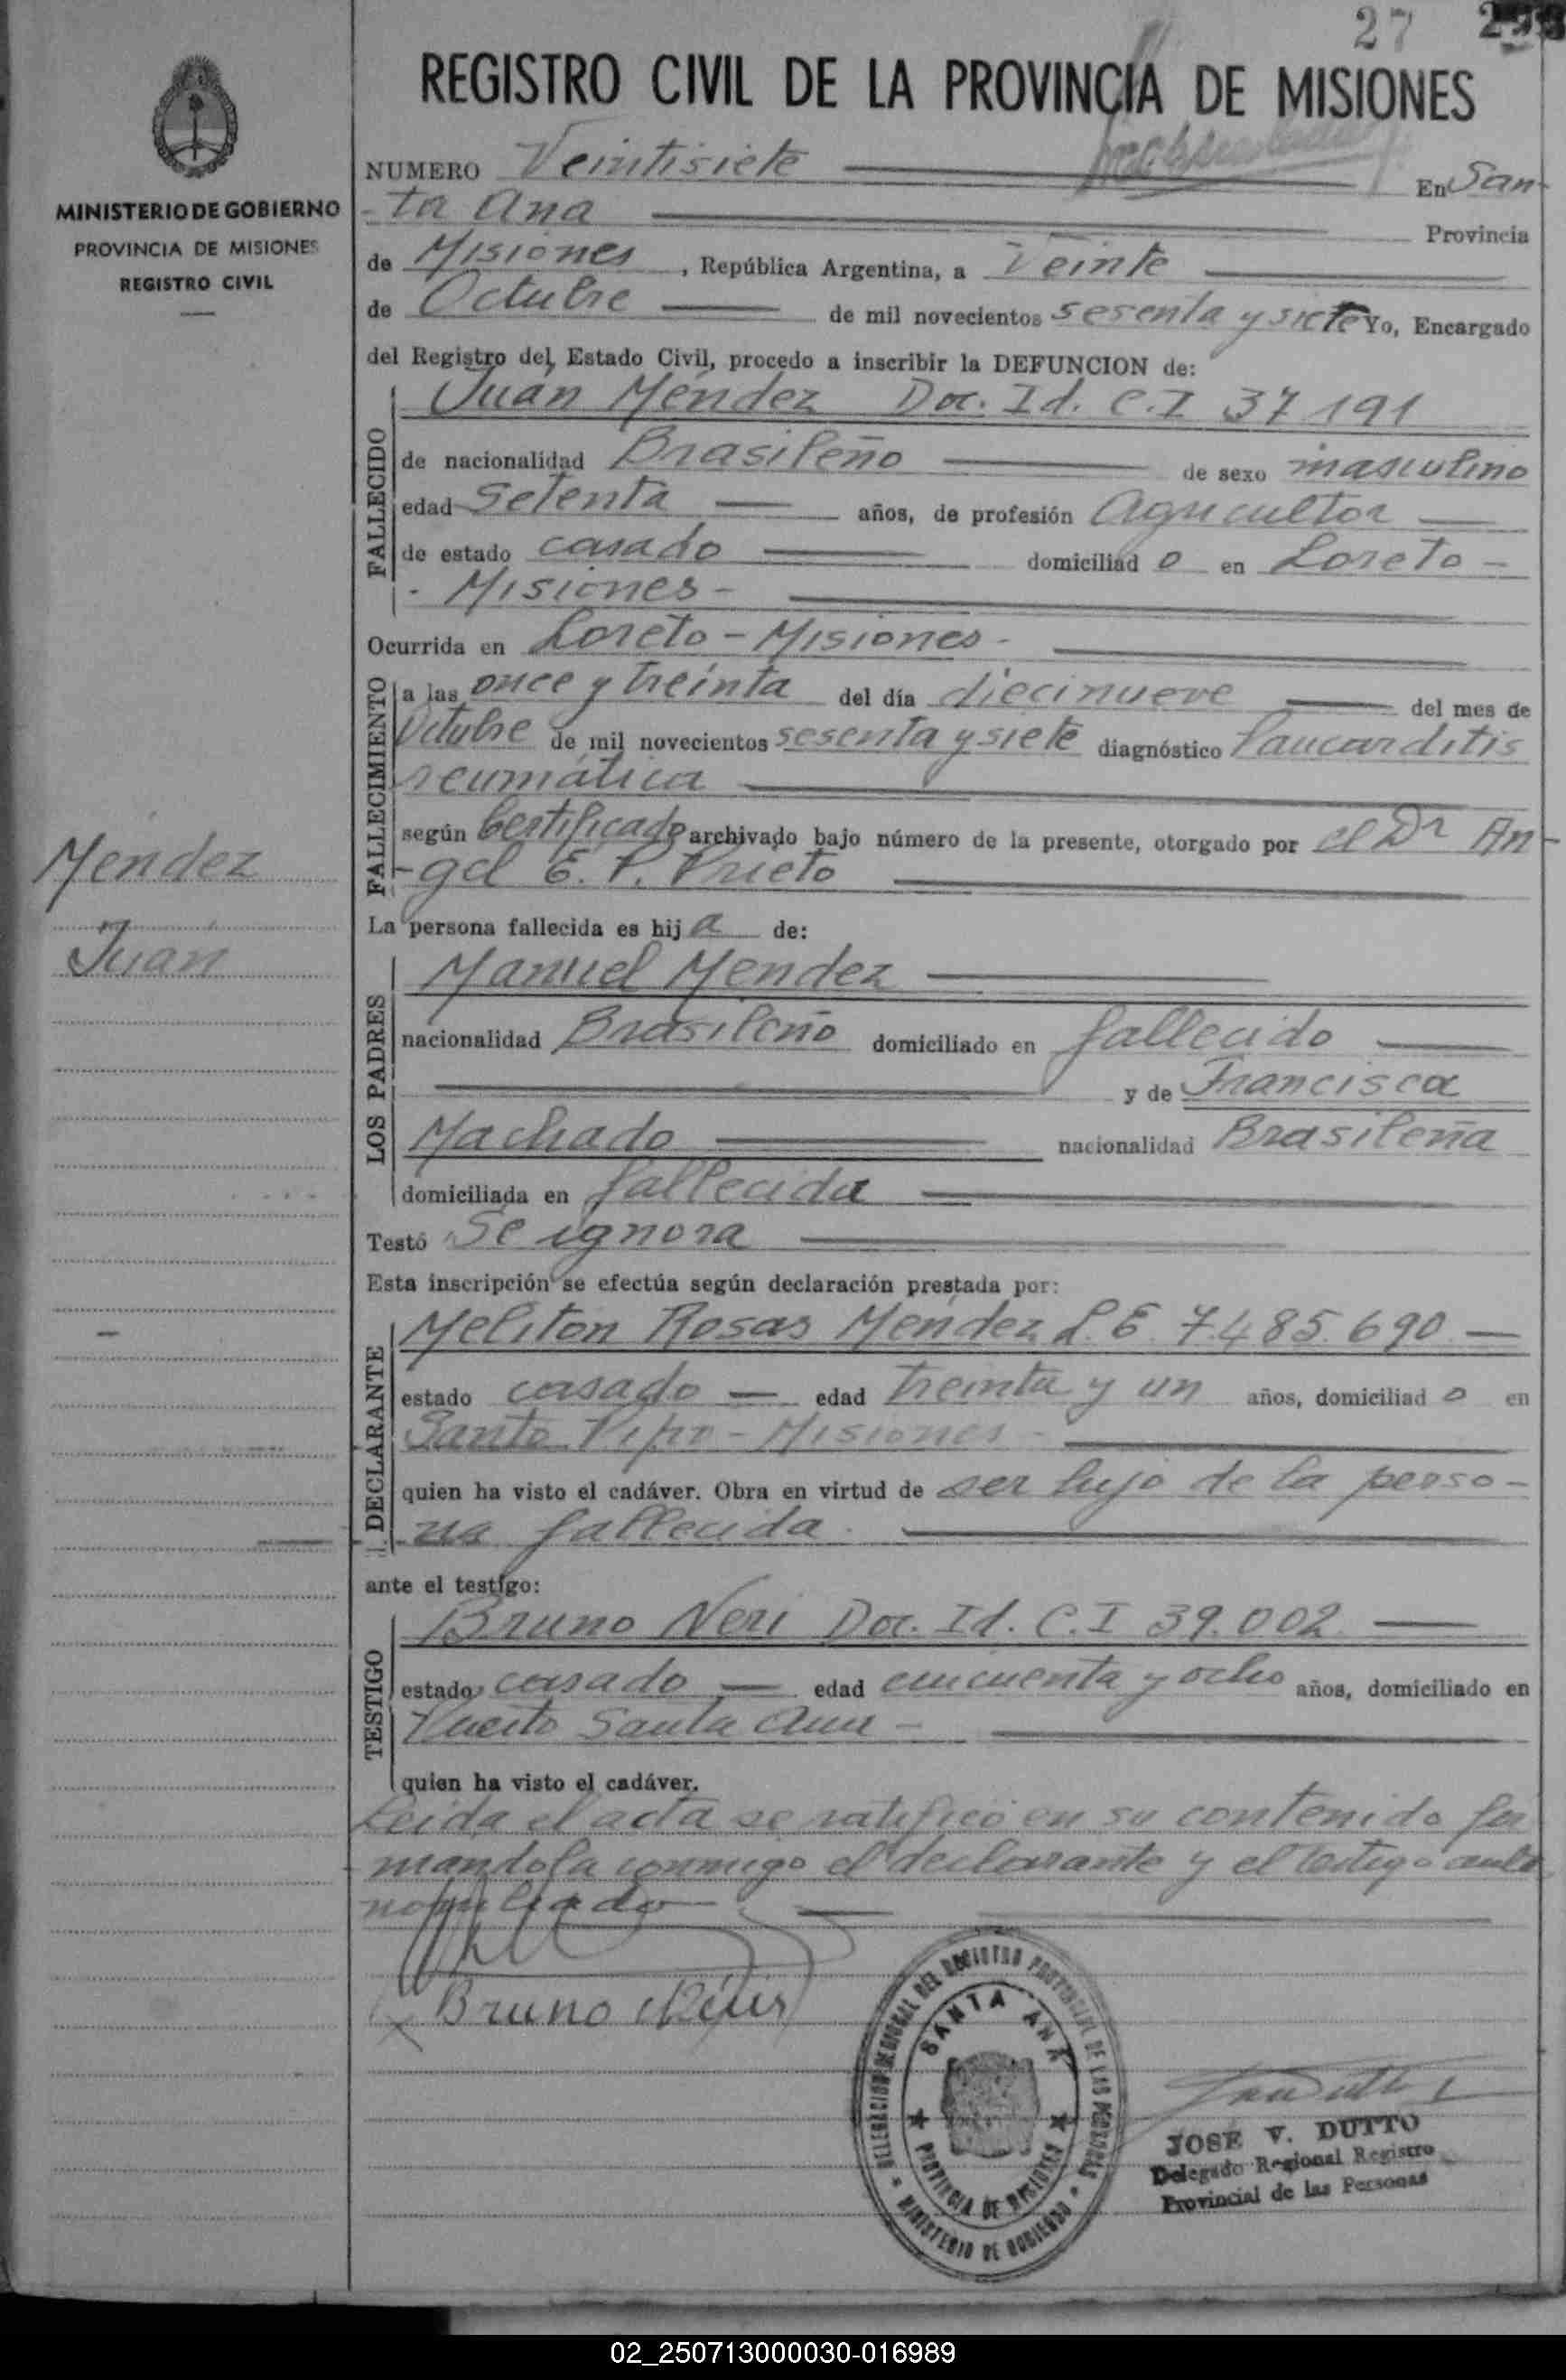 27
REGISTRO CIVIL DE LA PROVINCIA DE MISIONES
MINISTERIO DE GOBIERNO
PROVINCIA DE MISIONES
REGISTRO CIVIL
NUMERO Veintisiete En San-
-ta Ana Provincia
de Misiones, República Argentina, a Veinte
de Octubre de mil novecientos sesenta y siete Yo, Encargado
del Registro del Estado Civil, procedo a inscribir la DEFUNCION de:
FALLECIDO
Juan Méndez Doc. Id. C.I 37 191
de nacionalidad Brasileño de sexo masculino
edad Setenta años, de profesión Agricultor
de estado casado domiciliad o en Loreto -
- Misiones -
Ocurrida en Loreto - Misiones -
FALLECIMIENTO
a las once y treinta del día diecinueve del mes de
Octubre de mil novecientos sesenta y siete diagnóstico Pancarditis
reumática
según Certificado archivado bajo número de la presente, otorgado por el Dr An-
-gel E. P. Prieto
La persona fallecida es hij a de:
Mendez
Juan
LOS PADRES
Manuel Mendez
nacionalidad Brasileño domiciliado en fallecido
y de Francisca
Machado nacionalidad Brasileña
domiciliada en fallecida
Testó Se ignora
Esta inscripción se efectúa según declaración prestada por:
DECLARANTE
Meliton Rosas Mendez L.E. 7.485.690
estado casado edad treinta y un años, domiciliad o en
Santo Pipo - Misiones -
quien ha visto el cadáver. Obra en virtud de ser hijo de la perso-
-na fallecida.
ante el testigo:
TESTIGO
Bruno Neri Doc. Id. C.I 39.002
estado casado edad cincuenta y ocho años, domiciliado en
Puerto Santa Ana -
quien ha visto el cadáver.
Leida el acta se ratificó en su contenido fir
mandola conmigo el declarante y el testigo ante
Bruno
DELEGACION REGIONAL DEL REGISTRO PROVINCIAL DE LAS PERSONAS
SANTA ANA
PROVINCIA DE MISIONES
MINISTERIO DE GOBIERNO
JOSE V. DUTTO
Delegado Regional Registro
Provincial de las Personas
02_250713000030-016989